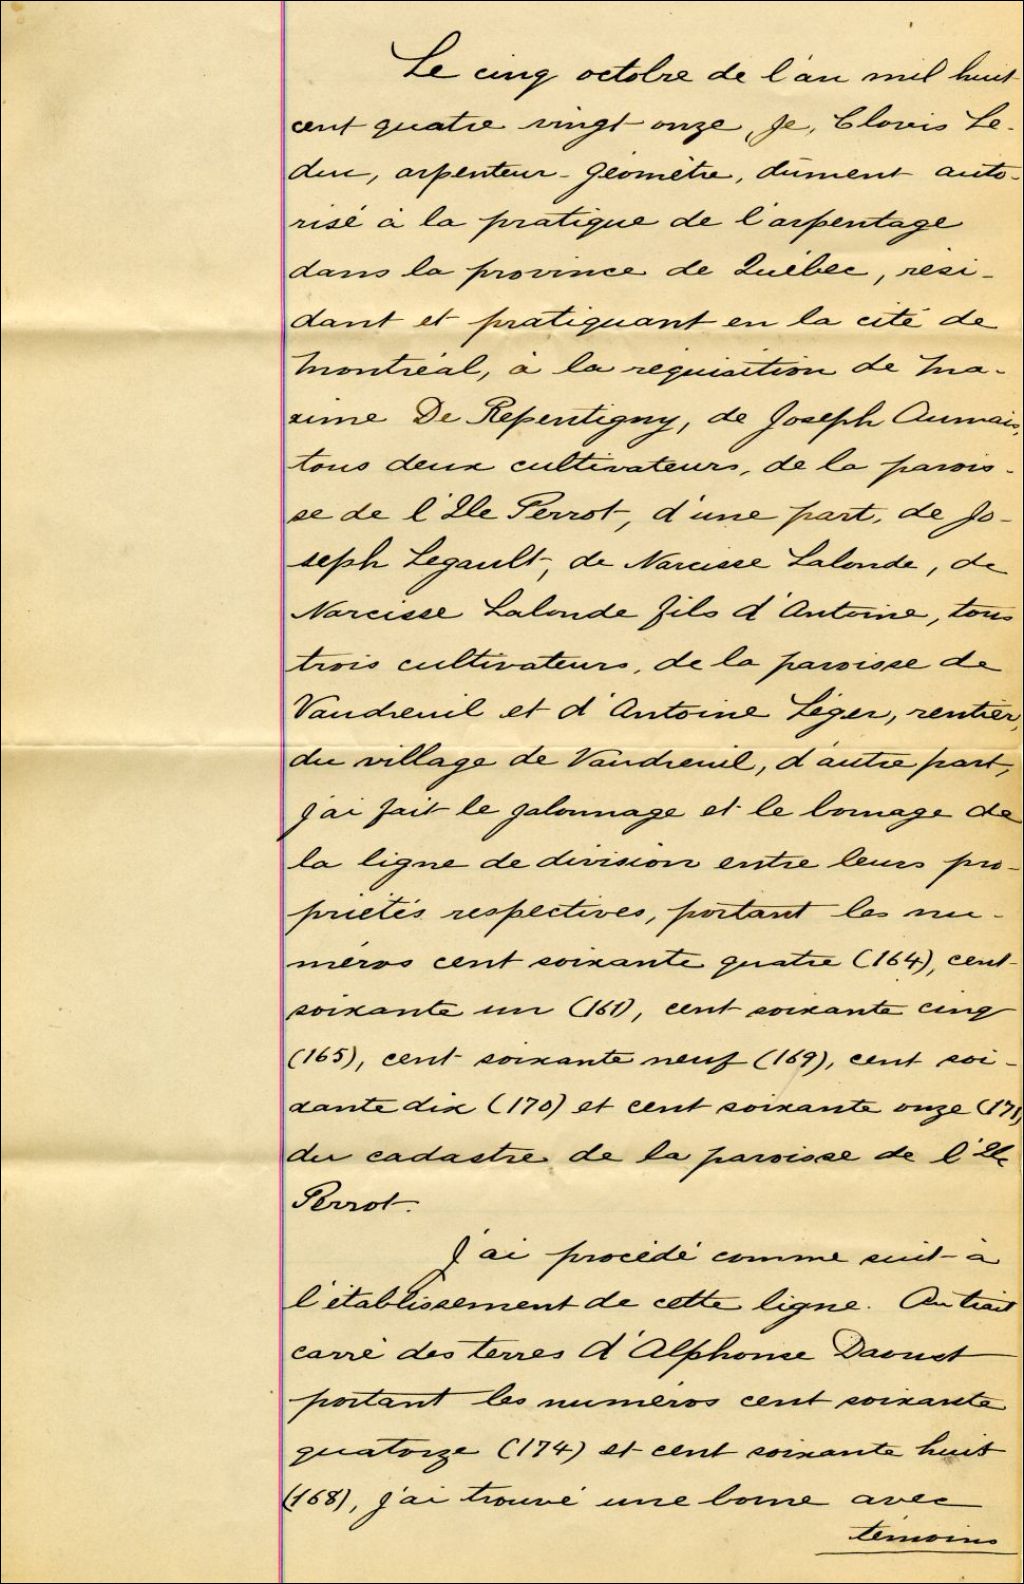 Le cinq octobre de l'an mil huit
cent quatre vingt onze, je, Clovis Le-
duc, arpenteur-géomètre, dûment auto-
risé à la pratique de l'arpentage
dans la province de Québec, rési-
dant et pratiquant en la cité de
Montréal, à la réquisition de Ma-
xime De Repentigny, de Joseph Aumais,
tous deux cultivateurs, de la parois-
se de l'Ile Perrot, d'une part, de Jo-
seph Legault, de Narcisse Lalonde, de
Narcisse Lalonde fils d'Antoine, tous
trois cultivateurs, de la paroisse de
Vaudreuil et d'Antoine Léger, rentier,
du village de Vaudreuil, d'autre part,
j'ai fait le jalonnage et le bornage de
la ligne de division entre leurs pro-
priétés respectives, portant les nu-
méros cent soixante quatre (164), cent
soixante un (161), cent soixante cinq
(165), cent soixante neuf (169), cent soi-
xante dix (170) et cent soixante onze (171)
du cadastre de la paroisse de l'Ile
Perrot.
J'ai procédé comme suit à
l'établissement de cette ligne. Au trait
carré des terres d'Alphonse Daoust
portant les numéros cent soixante
quatorze (174) et cent soixante huit
(168), j'ai trouvé une borne avec
témoins